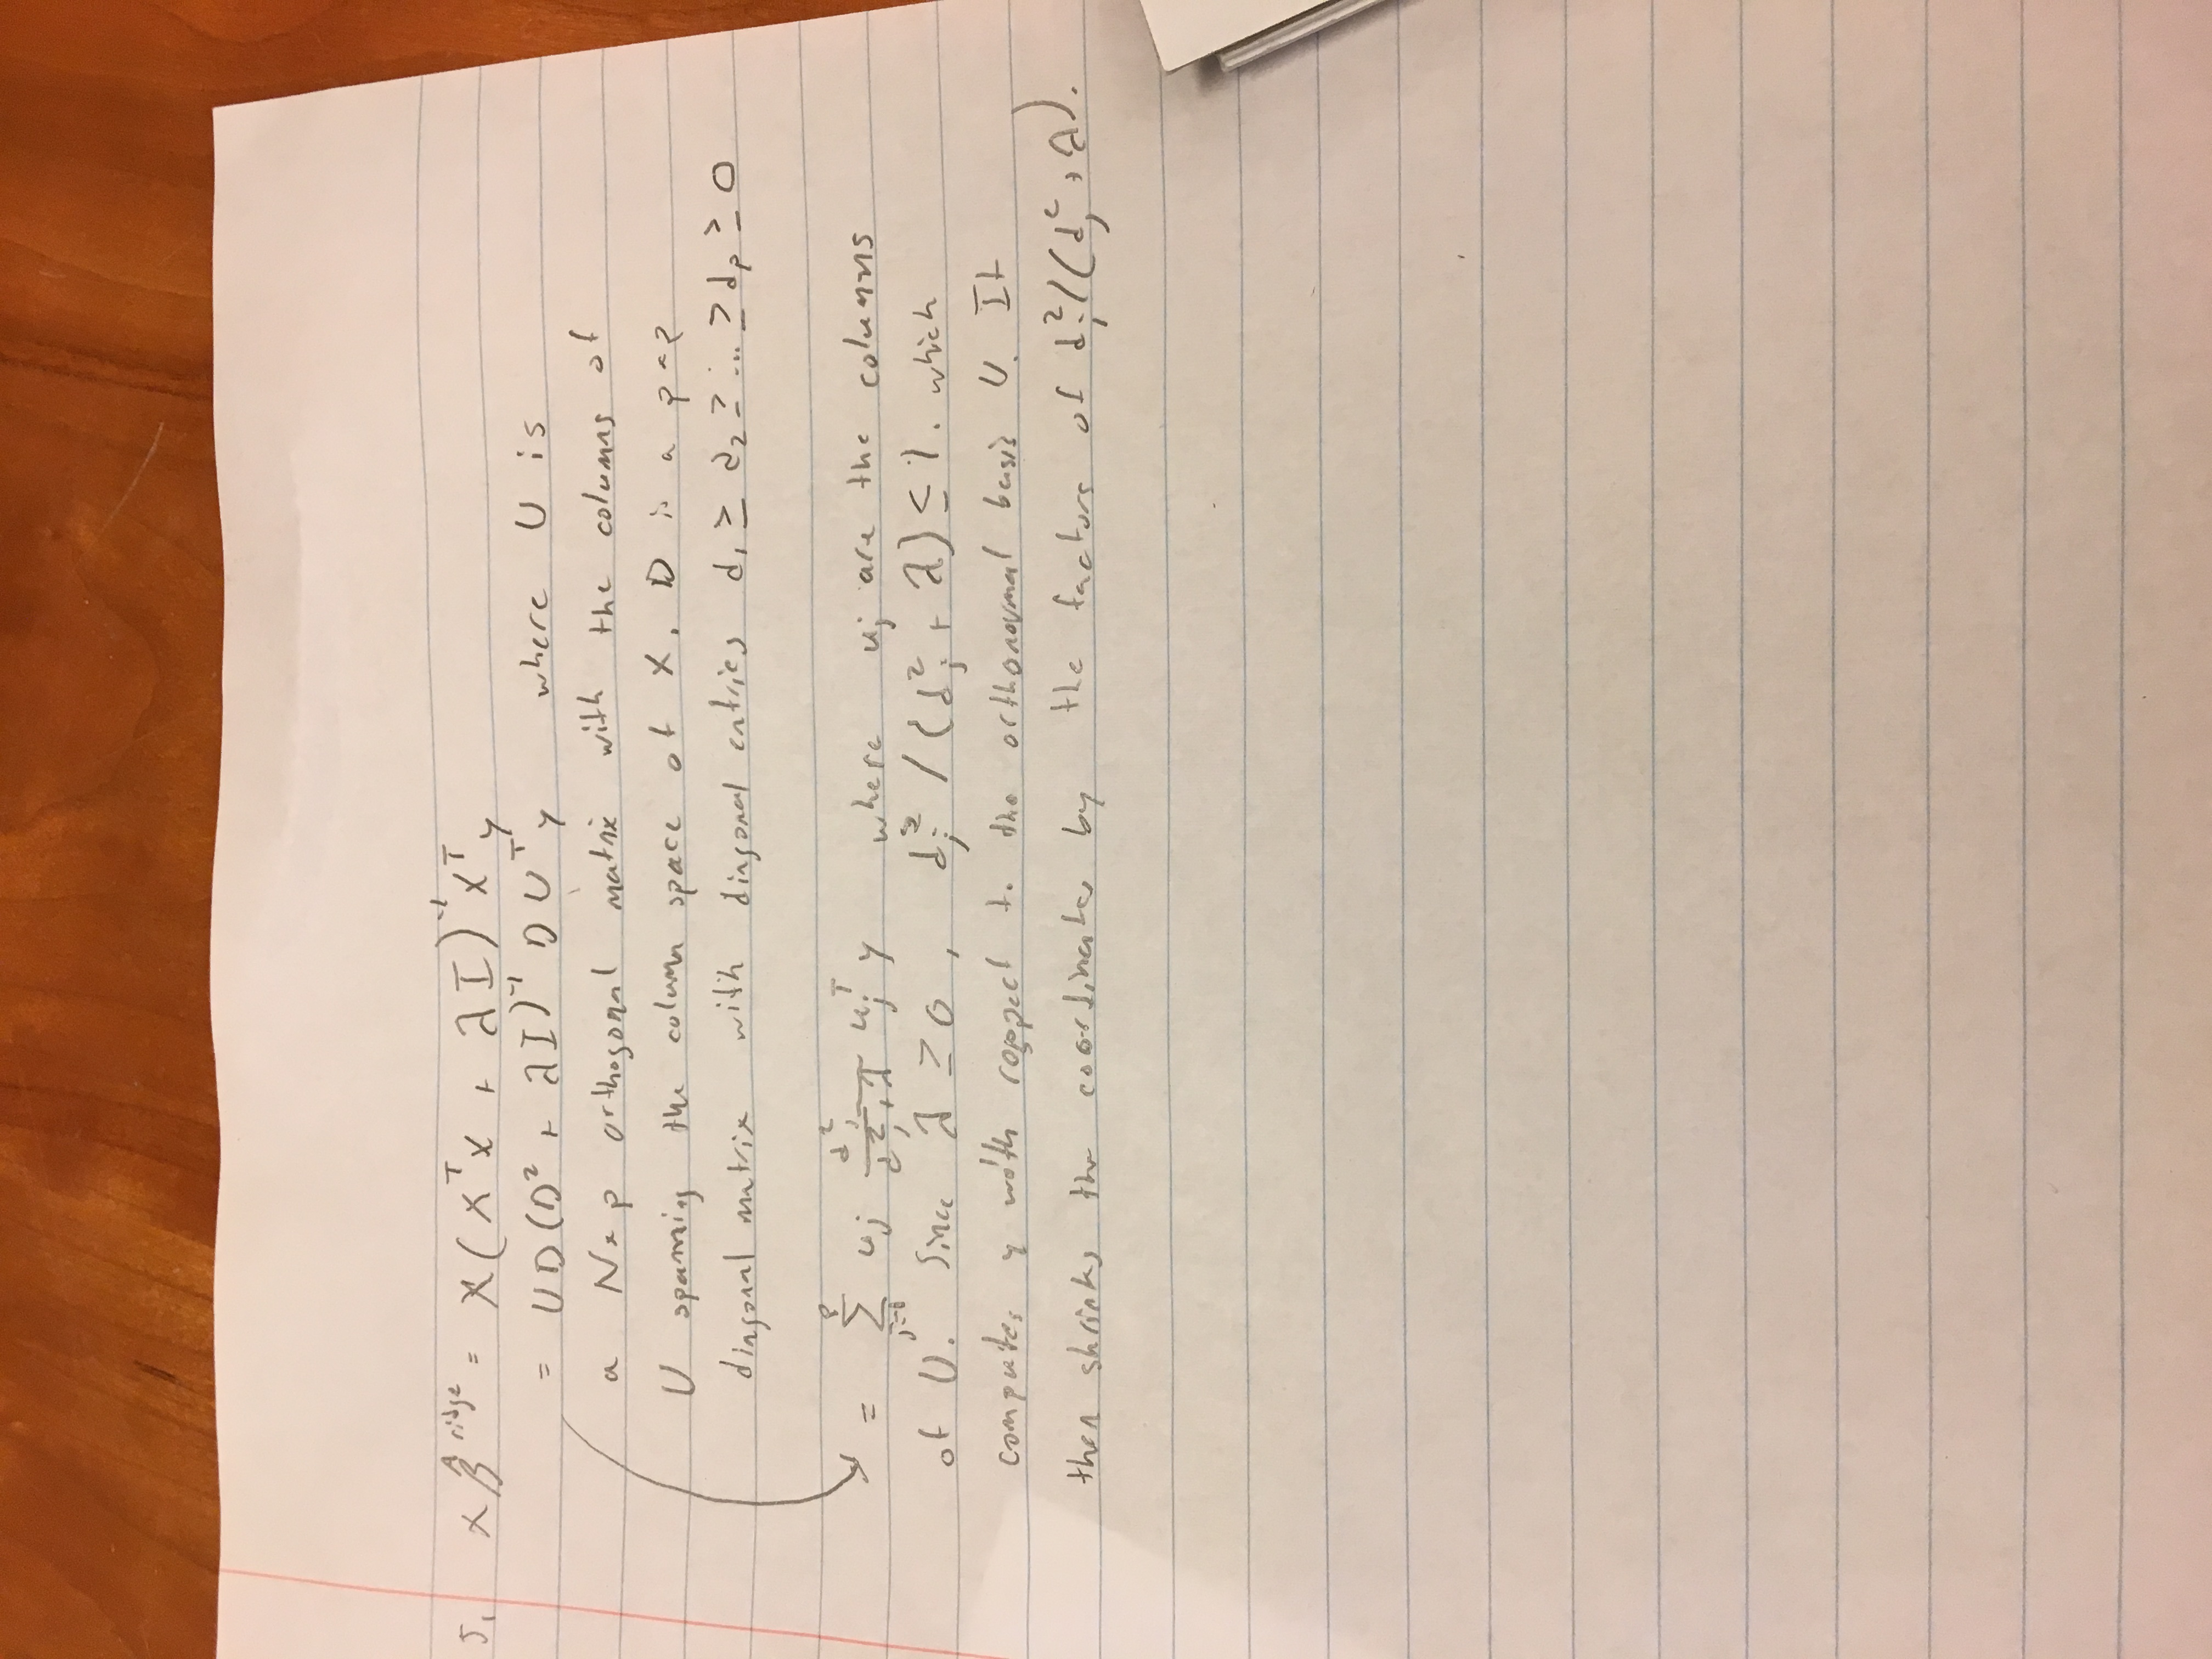 5. Xβ̂^ridge = X(X^T X + λI)^-1 X^T y
= UD(D² + λI)^-1 DU^T y where U is
a N×p orthogonal matrix with the columns of
U spanning the column space of X. D is a p×p
diagonal matrix with diagonal entries d₁ ≥ d₂ ≥ ... ≥ d_p ≥ 0
= Σ_{j=1}^p u_j d_j²/(d_j² + λ) u_j^T y where u_j are the columns
of U. Since λ ≥ 0, d_j² / (d_j² + λ) ≤ 1. which
computes y with respect to the orthonormal basis U. It
then shrinks the coordinates by the factors of d_j²/(d_j² + λ).